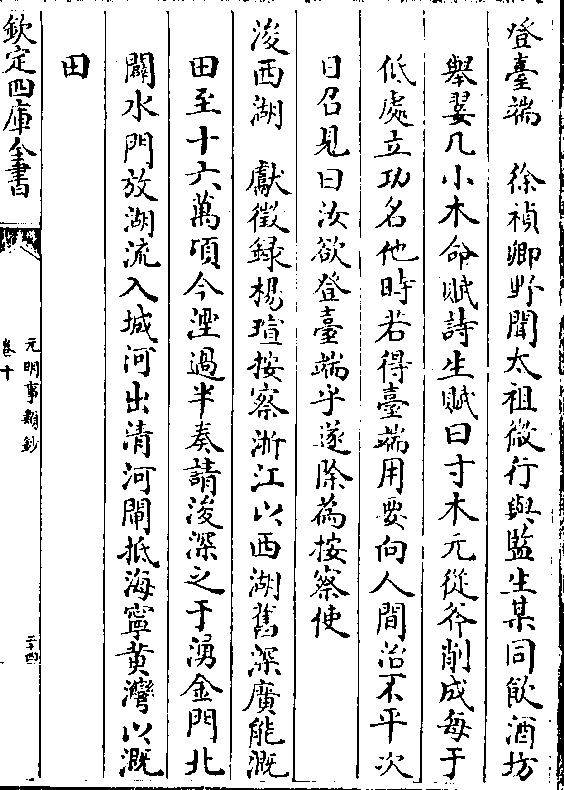 登臺端　徐禎卿野聞太祖微行與監生某同飲酒坊
舉翣几小木命賦詩生賦曰寸木元從斧削成每于
低處立功名他時若得臺端用要向人間治不平次
日召見曰汝欲登臺端乎遂除為按察使
浚西湖　獻徵録楊瑄按察浙江以西湖舊深廣能溉
田至十六萬項今湮過半奏請浚深之于湧金門北
闢水門放湖流入城河出清河閘抵海寧黄灣以溉
田
欽定四庫全書
元明事類鈔
卷十
二十四